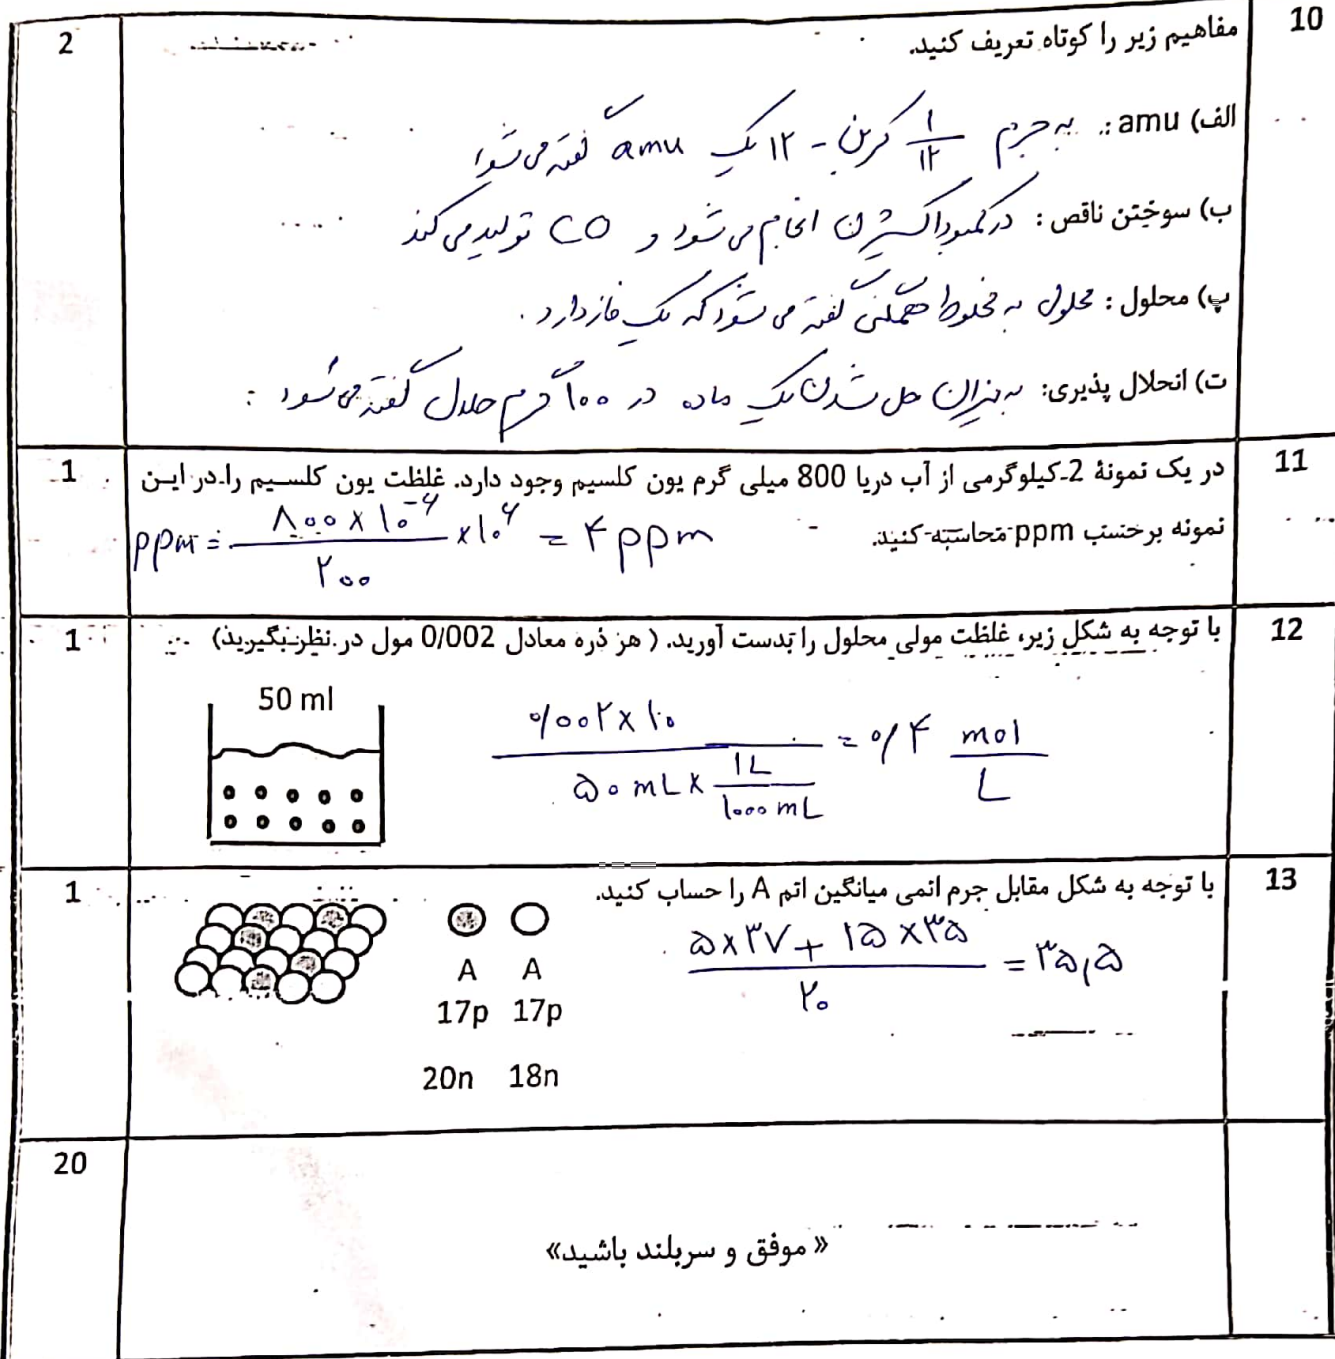 10
مفاهیم زیر را کوتاه تعریف کنید.
2
الف) amu: به جرم ۱/۱۲ کربن - ۱۲ یک amu گفته می شود
ب) سوختن ناقص: در کمبود اکسیژن انجام می شود و CO تولید می کند
پ) محلول: محلول به مخلوط همگنی گفته می شود که یک فاز دارد.
ت) انحلال پذیری: به میزان حل شدن یک ماده در ۱۰۰ گرم حلال گفته می شود:
11
در یک نمونۀ 2-کیلوگرمی از آب دریا 800 میلی گرم یون کلسیم وجود دارد. غلظت یون کلسیم را در این
1
نمونه برحسب ppm محاسبه کنید.
ppm = ۸۰۰ × ۱۰⁻⁶ / ۲۰۰ × ۱۰⁶ = ۴ ppm
12
با توجه به شکل زیر، غلظت مولی محلول را بدست آورید. ( هر ذره معادل 0/002 مول در نظر بگیرید)
1
50 ml
۰/۰۰۲ × ۱۰ / ۵۰ mL × 1L / ۱۰۰۰ mL = ۰/۴ mol / L
13
با توجه به شکل مقابل جرم اتمی میانگین اتم A را حساب کنید.
1
۵×۳۷ + ۱۵×۳۵ / ۲۰ = ۳۵,۵
A A
17p 17p
20n 18n
20
« موفق و سربلند باشید»